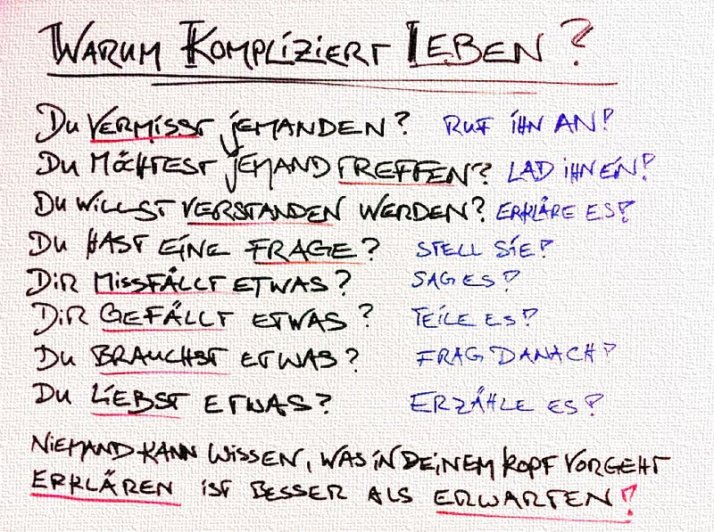 WARUM KOMPLIZIERT LEBEN?
DU VERMISST JEMANDEN? RUF IHN AN!
DU MÖCHTEST JEMAND TREFFEN? LAD IHN EIN!
DU WILLST VERSTANDEN WERDEN? ERKLÄRE ES!
DU HAST EINE FRAGE? STELL SIE!
DIR MISSFÄLLT ETWAS? SAG ES!
DIR GEFÄLLT ETWAS? TEILE ES!
DU BRAUCHST ETWAS? FRAG DANACH!
DU LIEBST ETWAS? ERZÄHLE ES!
NIEMAND KANN WISSEN, WAS IN DEINEM KOPF VORGEHT
ERKLÄREN IST BESSER ALS ERWARTEN!